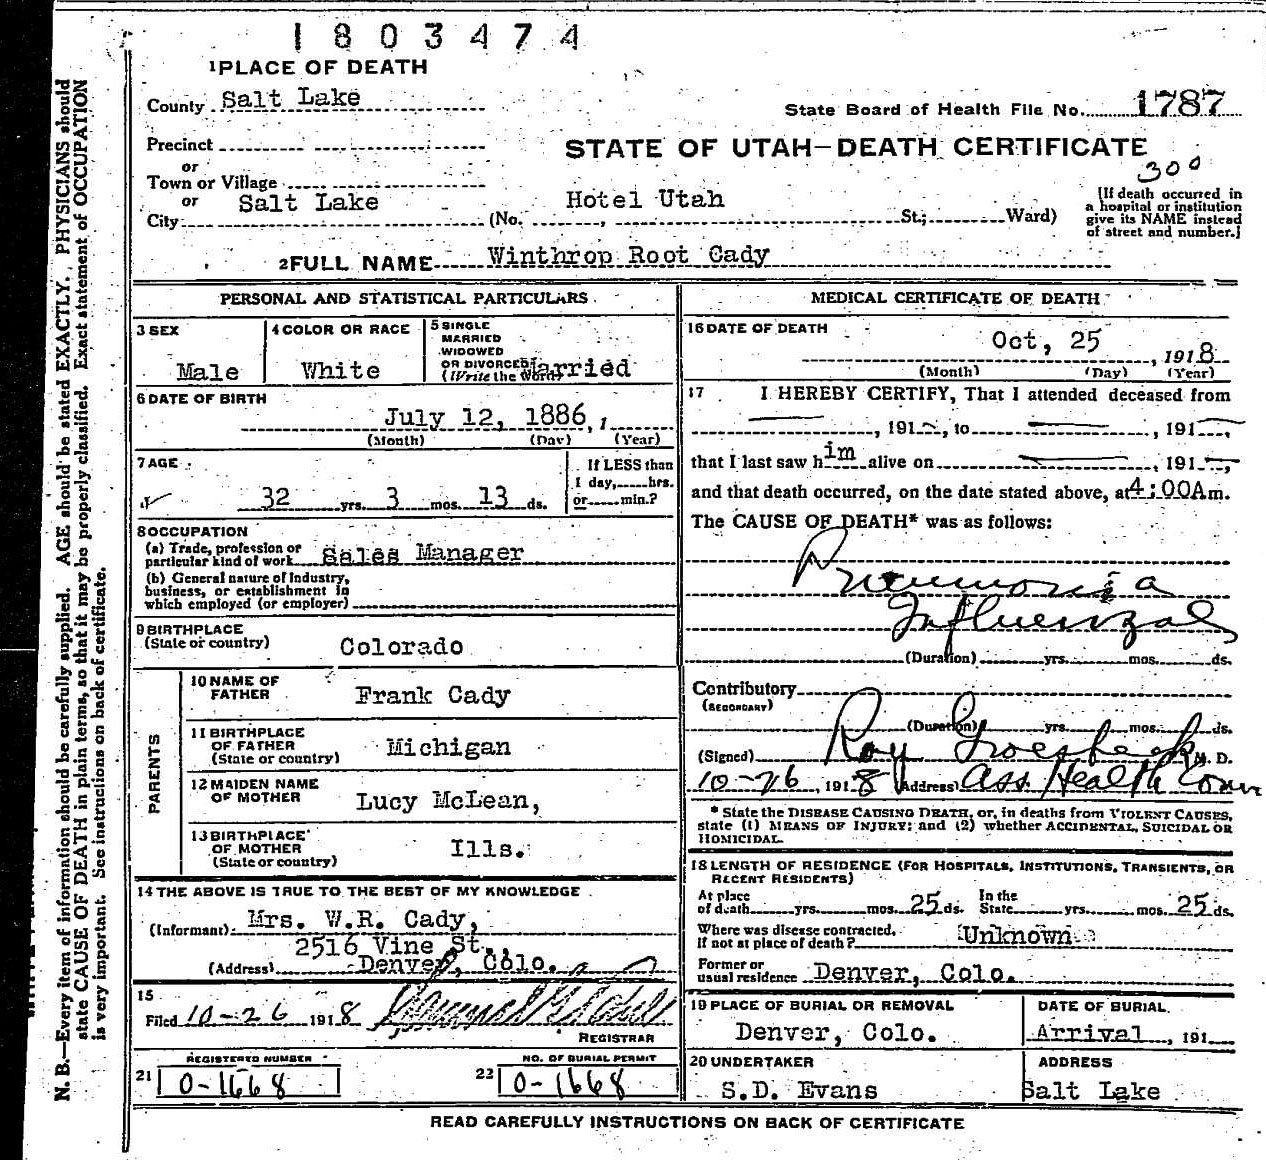 1803474
1 PLACE OF DEATH
County Salt Lake
State Board of Health File No. 1787
Precinct
STATE OF UTAH—DEATH CERTIFICATE
or
300
Town or Village
or Salt Lake Hotel Utah
City (No. , St.; Ward)
[If death occurred in
a hospital or institution
give its NAME instead
of street and number.]
2 FULL NAME Winthrop Root Cady
PERSONAL AND STATISTICAL PARTICULARS
3 SEX
Male
4 COLOR OR RACE
White
5 SINGLE
MARRIED
WIDOWED
OR DIVORCED
(Write the word)
Married
6 DATE OF BIRTH
July 12, 1886,
(Month) (Day) (Year)
7 AGE
32 yrs. 3 mos. 13 ds.
If LESS than
1 day, hrs.
or min.?
8 OCCUPATION
(a) Trade, profession or
particular kind of work Sales Manager
(b) General nature of Industry,
business, or establishment in
which employed (or employer)
9 BIRTHPLACE
(State or country) Colorado
PARENTS
10 NAME OF
FATHER Frank Cady
11 BIRTHPLACE
OF FATHER
(State or country) Michigan
12 MAIDEN NAME
OF MOTHER Lucy McLean,
13 BIRTHPLACE
OF MOTHER
(State or country) Ills.
14 THE ABOVE IS TRUE TO THE BEST OF MY KNOWLEDGE
(Informant) Mrs. W.R. Cady,
2516 Vine St.,
(Address) Denver, Colo.
15
Filed 10-26 1918
REGISTRAR
REGISTERED NUMBER
21 0-1668
NO. OF BURIAL PERMIT
22 0-1668
MEDICAL CERTIFICATE OF DEATH
16 DATE OF DEATH
Oct, 25, 1918
(Month) (Day) (Year)
17 I HEREBY CERTIFY, That I attended deceased from
, 191 , to , 191 ,
that I last saw him alive on , 191 ,
and that death occurred, on the date stated above, at 4:00A m.
The CAUSE OF DEATH* was as follows:
Pneumonia
Influenzal
(Duration) yrs. mos. ds.
Contributory
(SECONDARY)
(Duration) yrs. mos. ds.
(Signed) Roy Groesbeck M. D.
10-26, 1918 (Address) Ass Health Comr
* State the DISEASE CAUSING DEATH, or, in deaths from VIOLENT CAUSES,
state (1) MEANS OF INJURY; and (2) whether ACCIDENTAL, SUICIDAL OR
HOMICIDAL.
18 LENGTH OF RESIDENCE (FOR HOSPITALS, INSTITUTIONS, TRANSIENTS, OR
RECENT RESIDENTS)
At place
of death yrs. mos. 25 ds.
In the
State yrs. mos. 25 ds.
Where was disease contracted,
if not at place of death? Unknown
Former or
usual residence Denver, Colo.
19 PLACE OF BURIAL OR REMOVAL
Denver, Colo.
DATE OF BURIAL
Arrival, 191
20 UNDERTAKER
S.D. Evans
ADDRESS
Salt Lake
READ CAREFULLY INSTRUCTIONS ON BACK OF CERTIFICATE
N. B.—Every item of information should be carefully supplied. AGE should be stated EXACTLY. PHYSICIANS should
state CAUSE OF DEATH in plain terms, so that it may be properly classified. Exact statement of OCCUPATION
is very important. See instructions on back of certificate.